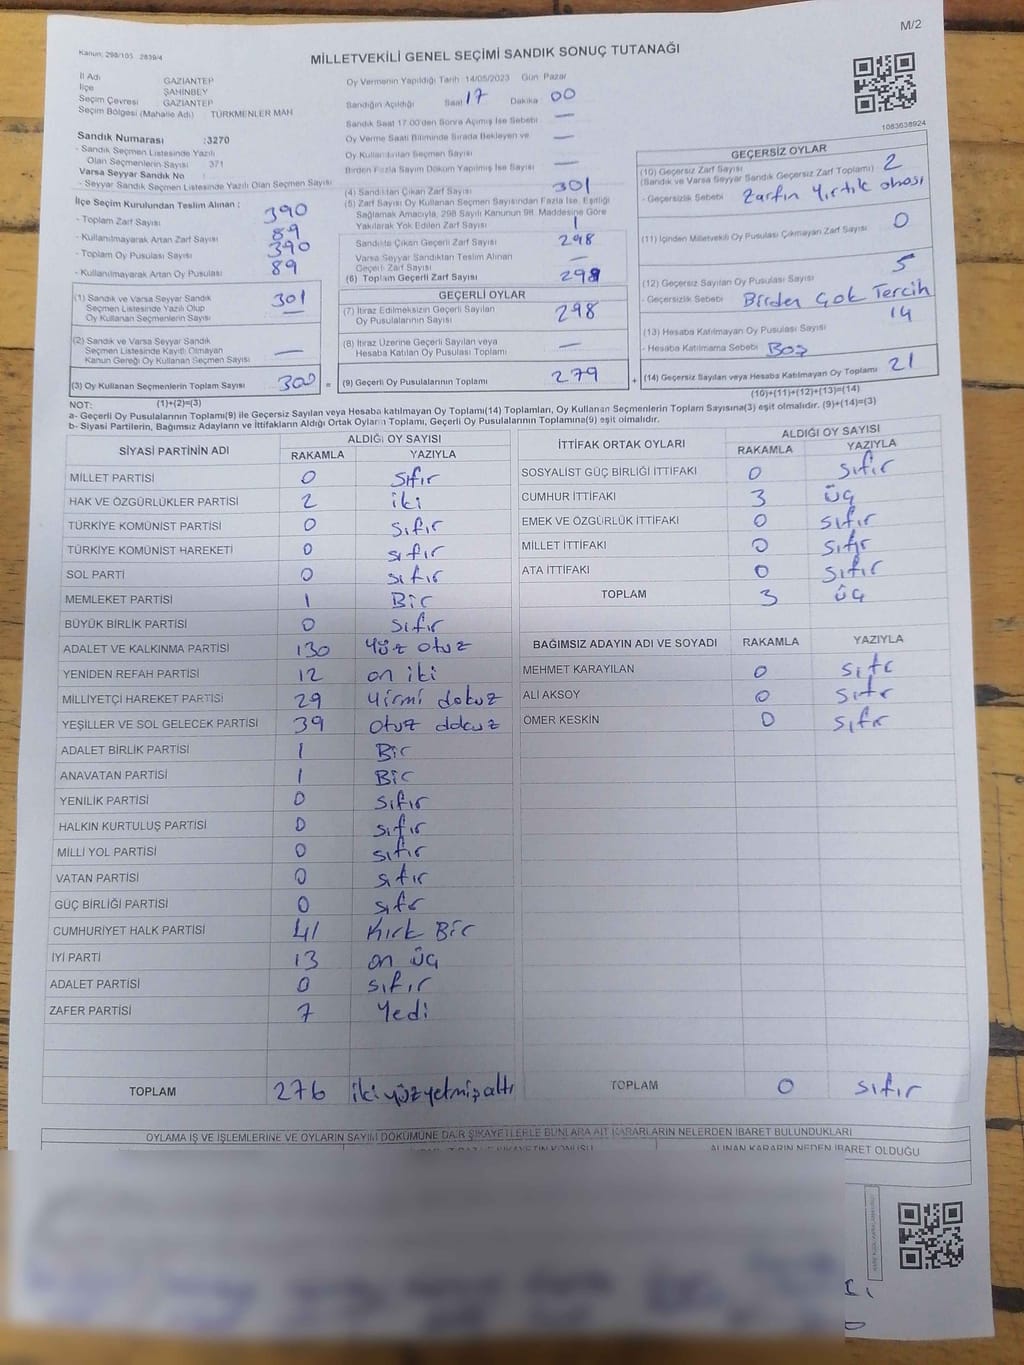 M/2
Kanun: 298/105 2839/4
MİLLETVEKİLİ GENEL SEÇİMİ SANDIK SONUÇ TUTANAĞI
İl Adı GAZİANTEP
İlçe ŞAHİNBEY
Seçim Çevresi GAZİANTEP
Seçim Bölgesi (Mahalle Adı) : TÜRKMENLER MAH
Sandık Numarası :3270
- Sandık Seçmen Listesinde Yazılı
Olan Seçmenlerin Sayısı : 371
Varsa Seyyar Sandık No
- Seyyar Sandık Seçmen Listesinde Yazılı Olan Seçmen Sayısı
İlçe Seçim Kurulundan Teslim Alınan :
- Toplam Zarf Sayısı 390
- Kullanılmayarak Artan Zarf Sayısı 89
- Toplam Oy Pusulası Sayısı 390
- Kullanılmayarak Artan Oy Pusulası 89
(1) Sandık ve Varsa Seyyar Sandık 301
Seçmen Listesinde Yazılı Olup
Oy Kullanan Seçmenlerin Sayısı
(2) Sandık ve Varsa Seyyar Sandık
Seçmen Listesinde Kayıtlı Olmayan —
Kanun Gereği Oy Kullanan Seçmen Sayısı
(3) Oy Kullanan Seçmenlerin Toplam Sayısı 300 =
(1)+(2)=(3)
Oy Vermenin Yapıldığı Tarih :14/05/2023 Gün Pazar
Sandığın Açıldığı Saat 17 Dakika 00
Sandık Saat 17:00'den Sonra Açımış İse Sebebi —
Oy Verme Saati Bitiminde Sırada Bekleyen ve —
Oy Kullandırılan Seçmen Sayısı
Birden Fazla Sayım Döküm Yapılmış İse Sayısı —
(4) Sandıktan Çıkan Zarf Sayısı 301
(5) Zarf Sayısı Oy Kullanan Seçmen Sayısından Fazla İse, Eşitliği
Sağlamak Amacıyla, 298 Sayılı Kanunun 98. Maddesine Göre
Yakılarak Yok Edilen Zarf Sayısı 1
Sandıkta Çıkan Geçerli Zarf Sayısı 298
Varsa Seyyar Sandıktan Teslim Alınan —
Geçerli Zarf Sayısı
(6) Toplam Geçerli Zarf Sayısı 298
GEÇERLİ OYLAR
(7) İtiraz Edilmeksizin Geçerli Sayılan 298
Oy Pusulalarının Sayısı
(8) İtiraz Üzerine Geçerli Sayılan veya —
Hesaba Katılan Oy Pusulası Toplamı
(9) Geçerli Oy Pusulalarının Toplamı 279 +
1083638924
GEÇERSİZ OYLAR
(10) Geçersiz Zarf Sayısı 2
(Sandık ve Varsa Seyyar Sandık Geçersiz Zarf Toplamı)
- Geçersizlik Sebebi Zarfın Yırtık olması
(11) İçinden Milletvekili Oy Pusulası Çıkmayan Zarf Sayısı 0
(12) Geçersiz Sayılan Oy Pusulası Sayısı 5
- Geçersizlik Sebebi Birden Çok Tercih
(13) Hesaba Katılmayan Oy Pusulası Sayısı 14
- Hesaba Katılmama Sebebi Boş
(14) Geçersiz Sayılan veya Hesaba Katılmayan Oy Toplamı 21
(10)+(11)+(12)+(13)=(14)
NOT:
a- Geçerli Oy Pusulalarının Toplamı(9) ile Geçersiz Sayılan veya Hesaba katılmayan Oy Toplamı(14) Toplamları, Oy Kullanan Seçmenlerin Toplam Sayısına(3) eşit olmalıdır. (9)+(14)=(3)
b- Siyasi Partilerin, Bağımsız Adayların ve İttifakların Aldığı Ortak Oyların Toplamı, Geçerli Oy Pusulalarının Toplamına(9) eşit olmalıdır.
SİYASİ PARTİNİN ADI ALDIĞI OY SAYISI
RAKAMLA YAZIYLA
MİLLET PARTİSİ 0 sıfır
HAK VE ÖZGÜRLÜKLER PARTİSİ 2 iki
TÜRKİYE KOMÜNİST PARTİSİ 0 sıfır
TÜRKİYE KOMÜNİST HAREKETİ 0 sıfır
SOL PARTİ 0 sıfır
MEMLEKET PARTİSİ 1 Bir
BÜYÜK BİRLİK PARTİSİ 0 sıfır
ADALET VE KALKINMA PARTİSİ 130 Yüz otuz
YENİDEN REFAH PARTİSİ 12 on iki
MİLLİYETÇİ HAREKET PARTİSİ 29 Yirmi dokuz
YEŞİLLER VE SOL GELECEK PARTİSİ 39 Otuz dokuz
ADALET BİRLİK PARTİSİ 1 Bir
ANAVATAN PARTİSİ 1 Bir
YENİLİK PARTİSİ 0 sıfır
HALKIN KURTULUŞ PARTİSİ 0 sıfır
MİLLİ YOL PARTİSİ 0 sıfır
VATAN PARTİSİ 0 sıfır
GÜÇ BİRLİĞİ PARTİSİ 0 sıfır
CUMHURİYET HALK PARTİSİ 41 Kırk Bir
İYİ PARTİ 13 on üç
ADALET PARTİSİ 0 sıfır
ZAFER PARTİSİ 7 Yedi
TOPLAM 276 iki yüz yetmiş altı
İTTİFAK ORTAK OYLARI ALDIĞI OY SAYISI
RAKAMLA YAZIYLA
SOSYALİST GÜÇ BİRLİĞİ İTTİFAKI 0 sıfır
CUMHUR İTTİFAKI 3 üç
EMEK VE ÖZGÜRLÜK İTTİFAKI 0 sıfır
MİLLET İTTİFAKI 0 sıfır
ATA İTTİFAKI 0 sıfır
TOPLAM 3 üç
BAĞIMSIZ ADAYIN ADI VE SOYADI RAKAMLA YAZIYLA
MEHMET KARAYILAN 0 sıfır
ALİ AKSOY 0 sıfır
ÖMER KESKİN 0 sıfır
TOPLAM 0 sıfır
OYLAMA İŞ VE İŞLEMLERİNE VE OYLARIN SAYIM DÖKÜMÜNE DAİR ŞİKAYETLERLE BUNLARA AİT KARARLARIN NELERDEN İBARET BULUNDUKLARI
ALINAN KARARIN NEDEN İBARET OLDUĞU